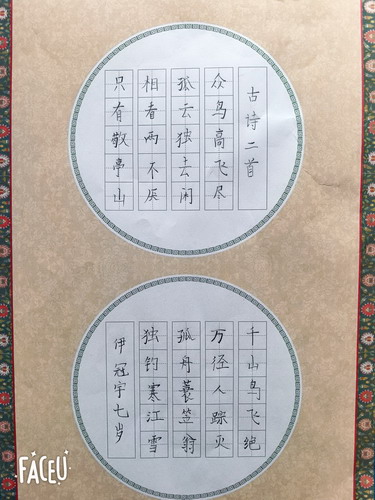 古诗二首
众鸟高飞尽
孤云独去闲
相看两不厌
只有敬亭山
千山鸟飞绝
万径人踪灭
孤舟蓑笠翁
独钓寒江雪
伊冠宇七岁
FACEU